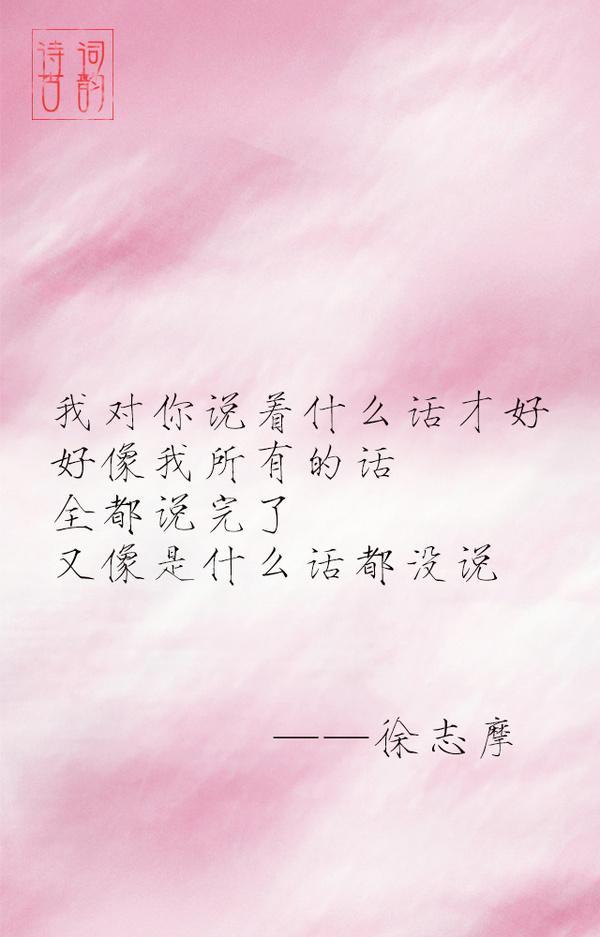 诗词
古韵
我对你说着什么话才好
好像我所有的话
全都说完了
又像是什么话都没说
——徐志摩